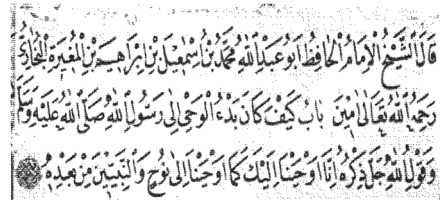 قَالَ الشَّيْخُ الْاِمَامُ الْحَافِظُ اَبُو عَبْدِ اللّٰهِ مُحَمَّدُ بْنُ اِسْمٰعِيْلَ بْنِ اِبْرَاهِيْمَ بْنِ الْمُغِيْرَةِ الْبُخَارِيُّ
رَحِمَهُ اللّٰهُ تَعَالٰى اٰمِيْنَ بَابُ كَيْفَ كَانَ بَدْءُ الْوَحْيِ اِلٰى رَسُوْلِ اللّٰهِ صَلَّى اللّٰهُ عَلَيْهِ وَسَلَّمَ
وَقَوْلُ اللّٰهِ جَلَّ ذِكْرُهُ اِنَّا اَوْحَيْنَا اِلَيْكَ كَمَا اَوْحَيْنَا اِلٰى نُوْحٍ وَالنَّبِيِّيْنَ مِنْ بَعْدِهٖ